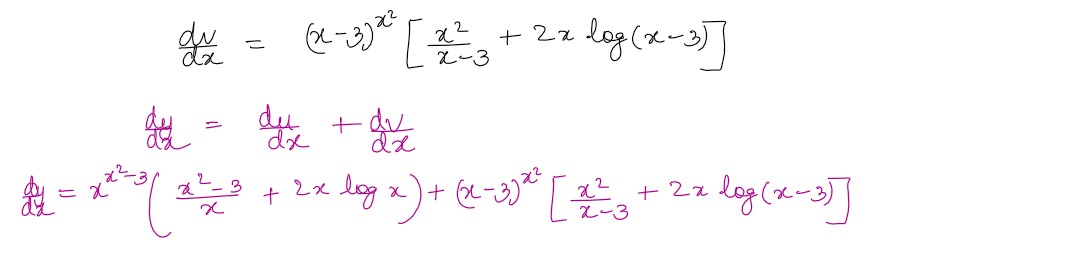 dv/dx = (x-3)^x² [x²/x-3 + 2x log(x-3)]
dy/dx = du/dx + dv/dx
dy/dx = x^x²-3 (x²-3/x + 2x log x) + (x-3)^x² [x²/x-3 + 2x log(x-3)]